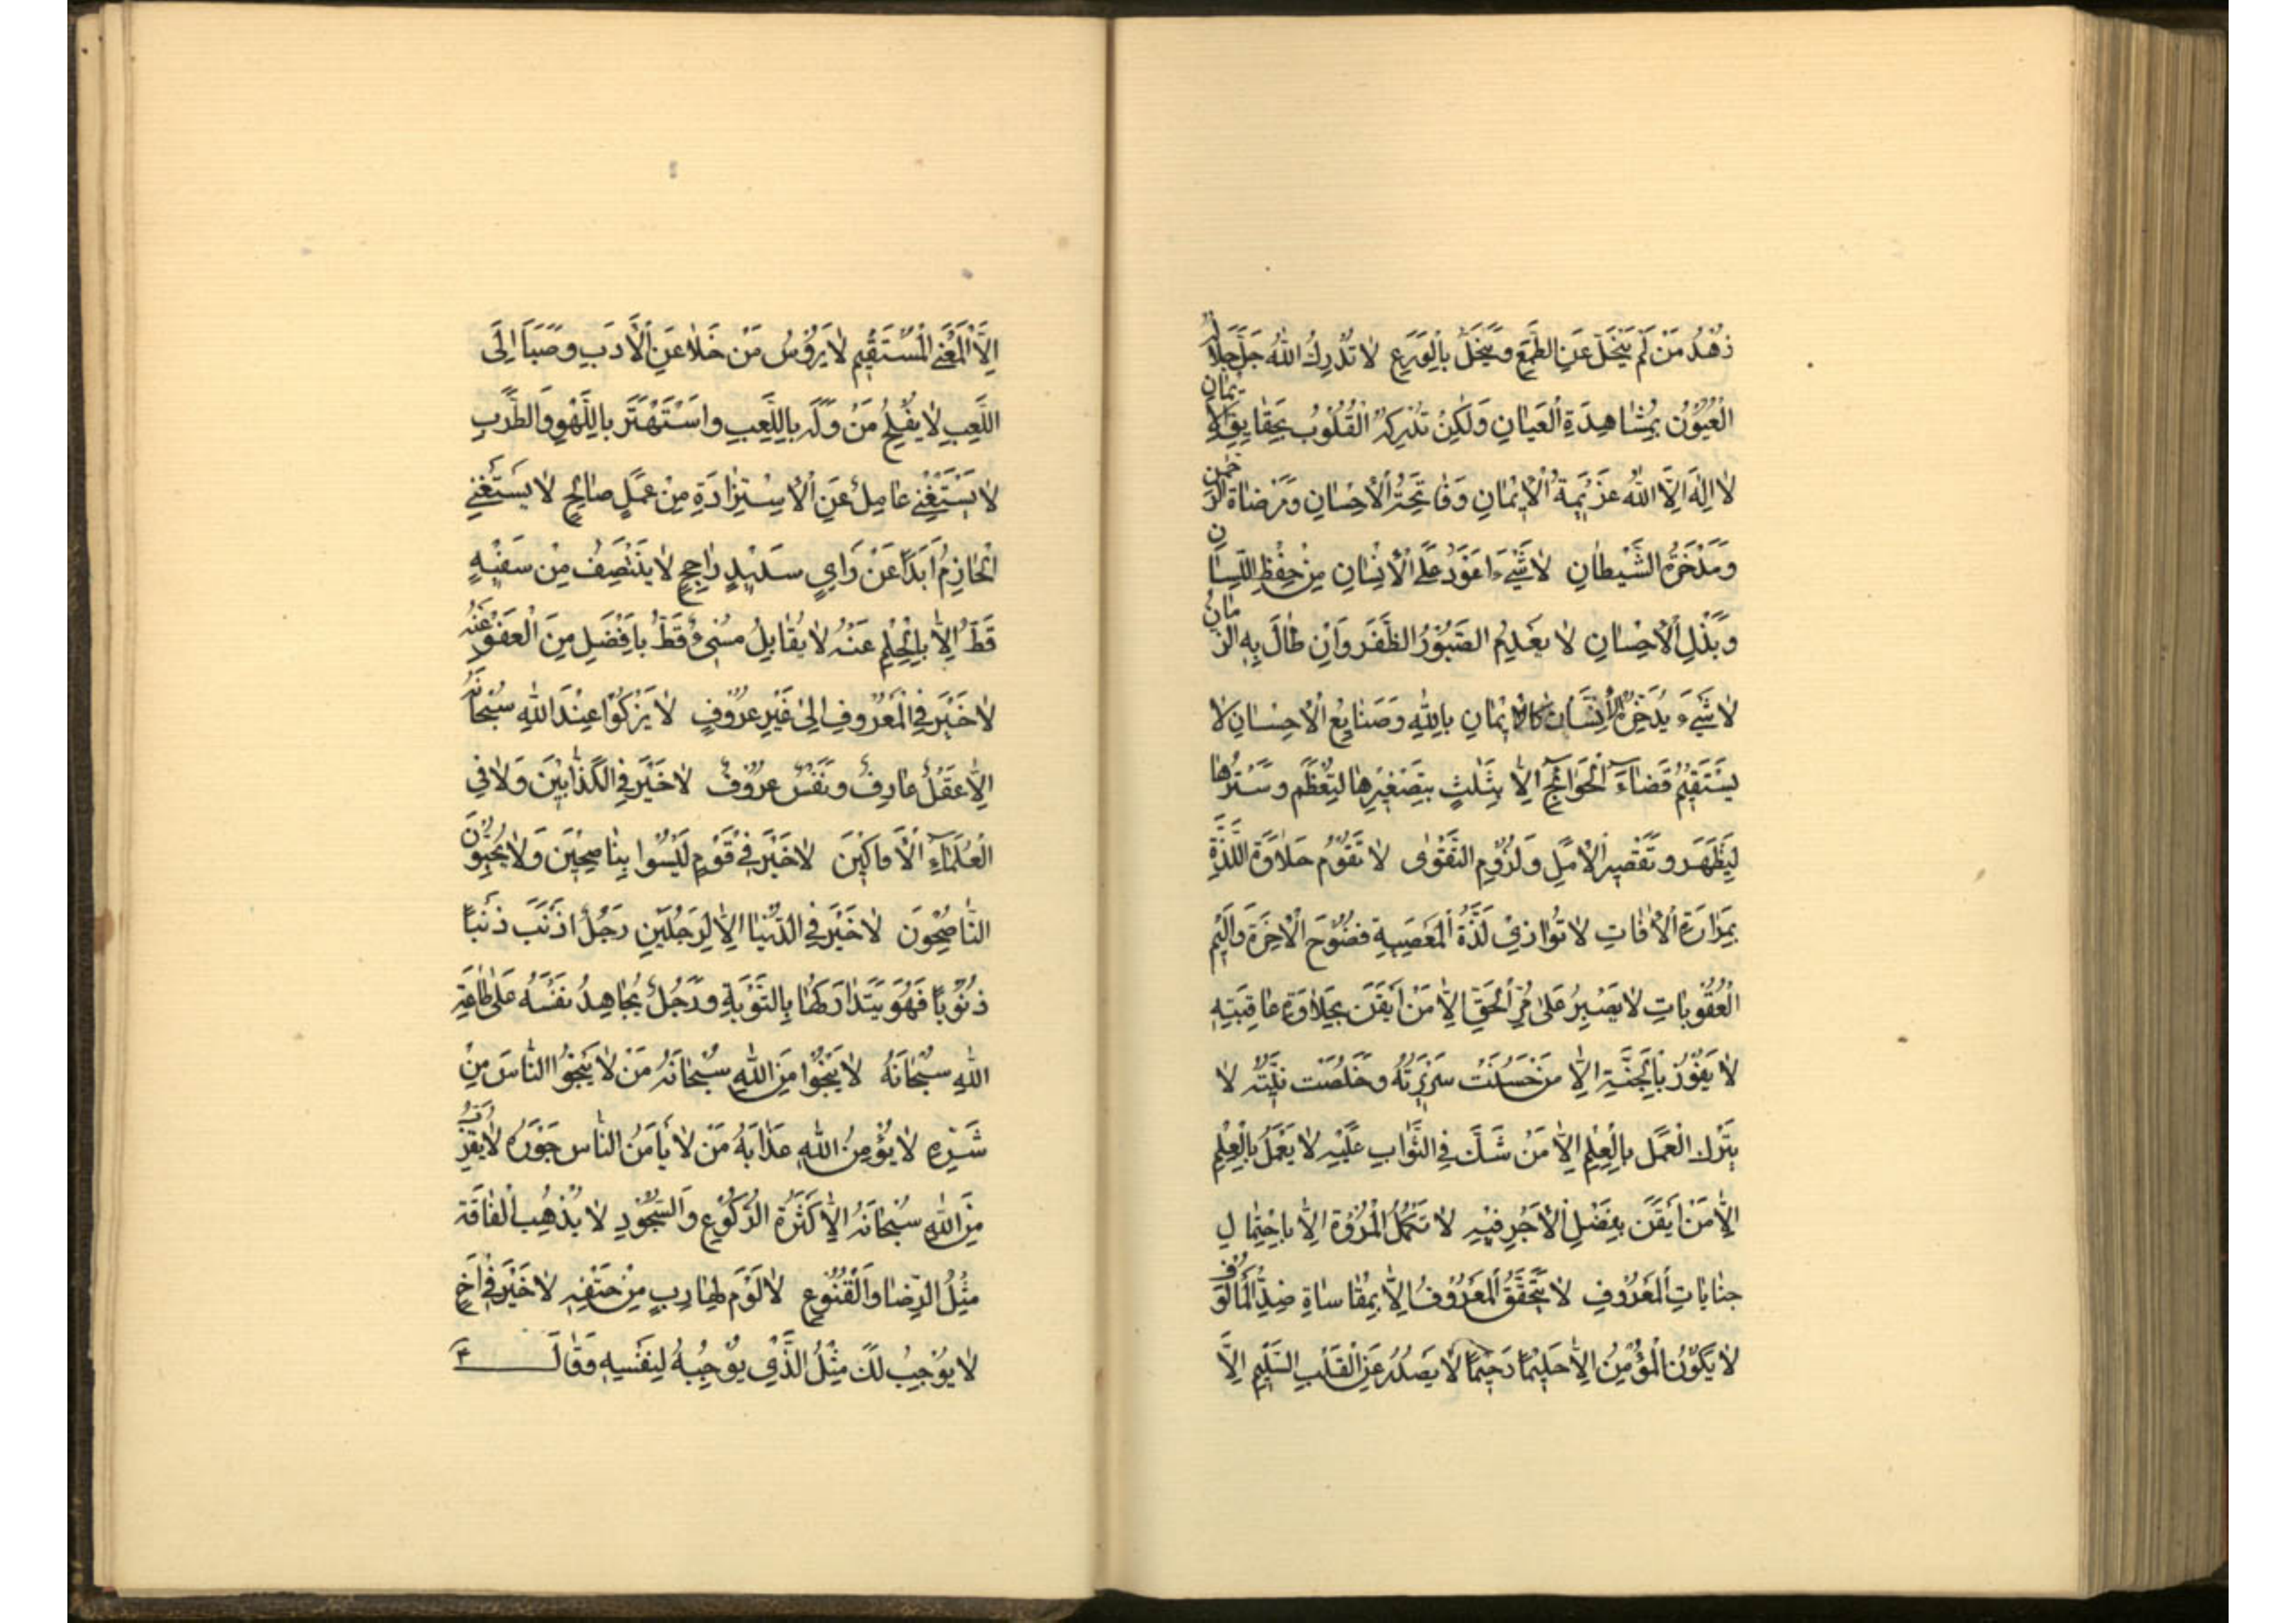 زُهْدُ مَنْ لَمْ يَتَخَلَّ عَنِ الطَّمَعِ وَيَتَحَلَّ بِالْوَرَعِ لا تُدْرِكُ اللهُ جَلَّ جَلالُهُ
الْعُيُوُنُ بِمُشاهِدَةِ الْعَيانِ وَلكِنْ تُدْرِكُهُ الْقُلُوُبُ بِحَقايِقِ الإيمانِ
لا اِلهَ اِلَّا اللهُ عَزيَمِةُ الْإيْمانِ وَفاتِحَةُ الْاِحْسانِ وَمَرْضاةُ الرَّحْمنِ
وَمَدْحَرَةُ الشَّيْطانِ لا شَيْءَ اَعْوَدُ عَلَى الْاِنْسانِ مِنْ حِفْظِ اللِّسانِ
وَبَذْلِ الْاِحْسانِ لا يَعْدِمُ الصَّبُوْرُ الظَّفَرَ وَاِنْ طالَ بِهِ الزَّمانُ
لا شَيْءَ يَدَّخِرُهُ الْاِنْسانُ كَالْإيمانِ بِاللهِ وَصَنايِعِ الْاِحْسانِ لا
يَسْتَقيْمُ قَضاءَ الْحَوائِجِ اِلّا بِثَلثٍ بِتَصْغيْرِها لِتَعْظُمَ وَسَتْرِها
لِيَظْهَرَ وَتَقْصيرِ الْاَمَلِ وَلُزُوْمِ التَّقْوى لا تَقُوْمُ حَلاوَةُ اللَّذَّةِ
بِمَرارَةِ الْافاتِ لا تُوازيْ لَذَّةُ الْمَعْصِيةِ فُضُوْحَ الْاخِرَةِ وَاَليْمَ
الْعُقُوْباتِ لا يَصْبِرُ عَلى مُرِّ الْحَقِّ اِلّا مَنْ اَيْقَنَ بِحَلاوَةِ عاقِبَتِهِ
لا يَفُوْزُ بِالْجَنَّةِ اِلّا مَنْ حَسُنَتْ سَريْرَتُهُ وَخَلُصَتْ نِيَّتُهُ لا
يَتْرُك الْعَمَل بِالْعِلْمِ اِلّا مَنْ شَكَّ فِي الثَّوابِ عَلَيْهِ لا يَعْمَلُ بِالْعِلْمِ
اِلّا مَنْ اَيْقَنَ بِفَضْلِ الْاَجْرِ فيْهِ لا تَكْمُلُ الْمُرُوَّة اِلّا بِاحْتِمالِ
جِناياتِ الْمَعْرُوْفِ لا يَتَحَقَّقُ الْمَعْرُوْفُ اِلّا بِمُقاساةِ ضِدِّ الْمَألُوْفِ
لا يَكُوْنُ الْمُؤْمِنُ اِلّا حَليْمًا رَحيْمًا لا يَصْدُرُ عَنِ الْقَلْبِ السَّليْمِ اِلَّا
اِلَّا الْمَعْنَى الْمُسْتَقيْم لا يَرْؤُسُ مَنْ خَلا عَنِ الْاَدَبِ وَصَبَا اِلَى
اللَّعِبِ لا يُفْلِحُ مَنْ وَلَهَ بِاللَّعِبِ وَاسْتَهْتَرَ بِاللَّهْوِ وَالطَّرَبِ
لا يَسْتَغْنِيْ عامِلٌ عَنِ الْاِسْتِزادَةِ مِنْ عَمَلٍ صالِحٍ لا يَسْتَغْنِيْ
الْحازِمُ اَبَدًا عَنْ رَايٍ سَديْدٍ راجِحٍ لا يَنْتَصِفُ مِنْ سَفيْهٍ
قَطُّ اِلّا بِالْحِلْمِ عَنْهُ لا يُقابِلُ مُسِيْءٌ قَطُّ بِاَفْضَلِ مِنَ الْعَفْوِ عَنْهُ
لا خَيْرَ فِي الْمَعْرُوفِ اِلى غَيْرِ عَرُوْفٍ لا يَزْكُوْا عِنْدَ اللهِ سُبْحانَهُ
اِلّا عَقْلٌ عارِفٌ وَنَفْسٌ عَرُوْفٌ لا خَيْرَ فِي الْكَذّابيْنَ وَلا فِي
الْعُلَماءِ الْاَفّاكيْنَ لا خَيْرَ فيْ قَوْمٍ لَيْسُوا بِناصِحيْنَ وَلا يُحِبُّوْنَ
النّاصِحُوْنَ لا خَيْرَ فِي الدُّنْيا اِلّا لِرَجُلَيْنِ رَجُلٌ اَذْنَبَ ذَنْبًا
ذُنُوْبًا فَهُوَ يَتَدارَكُها بِالتَّوْبَةِ وَرَجُلٌ يُجاهِدُ نَفْسَهُ عَلى طاعَةِ
اللهِ سُبْحانَهُ لا يَنْجُوْا مِنَ اللهِ سُبْحانَهُ مَنْ لا يَنْجُوْا النّاسَ مِنْ
شَرِّهِ لا يُؤْمِنُ اللهِ عَذابَهُ مَنْ لا يَأمَنُ النّاس جَوْرَهُ لا يُقَرِّبُ
مِنَ اللهِ سُبْحانَهُ اِلّا كَثْرَةُ الرُّكُوْعِ وَالسُّجُوْدِ لا يُذْهِبُ الْفاقَةَ
مِثْلُ الرِّضا وَالْقُنُوْعِ لا لَوْمَ لِهارِبٍ مِنْ حَتْفِهِ لا خَيْرَ فيْ اَخٍ
لا يُوْجِبُ لَكَ مِثْلُ الَّذيْ يُوْجِبُهُ لِنَفْسِهِ وَقالَ